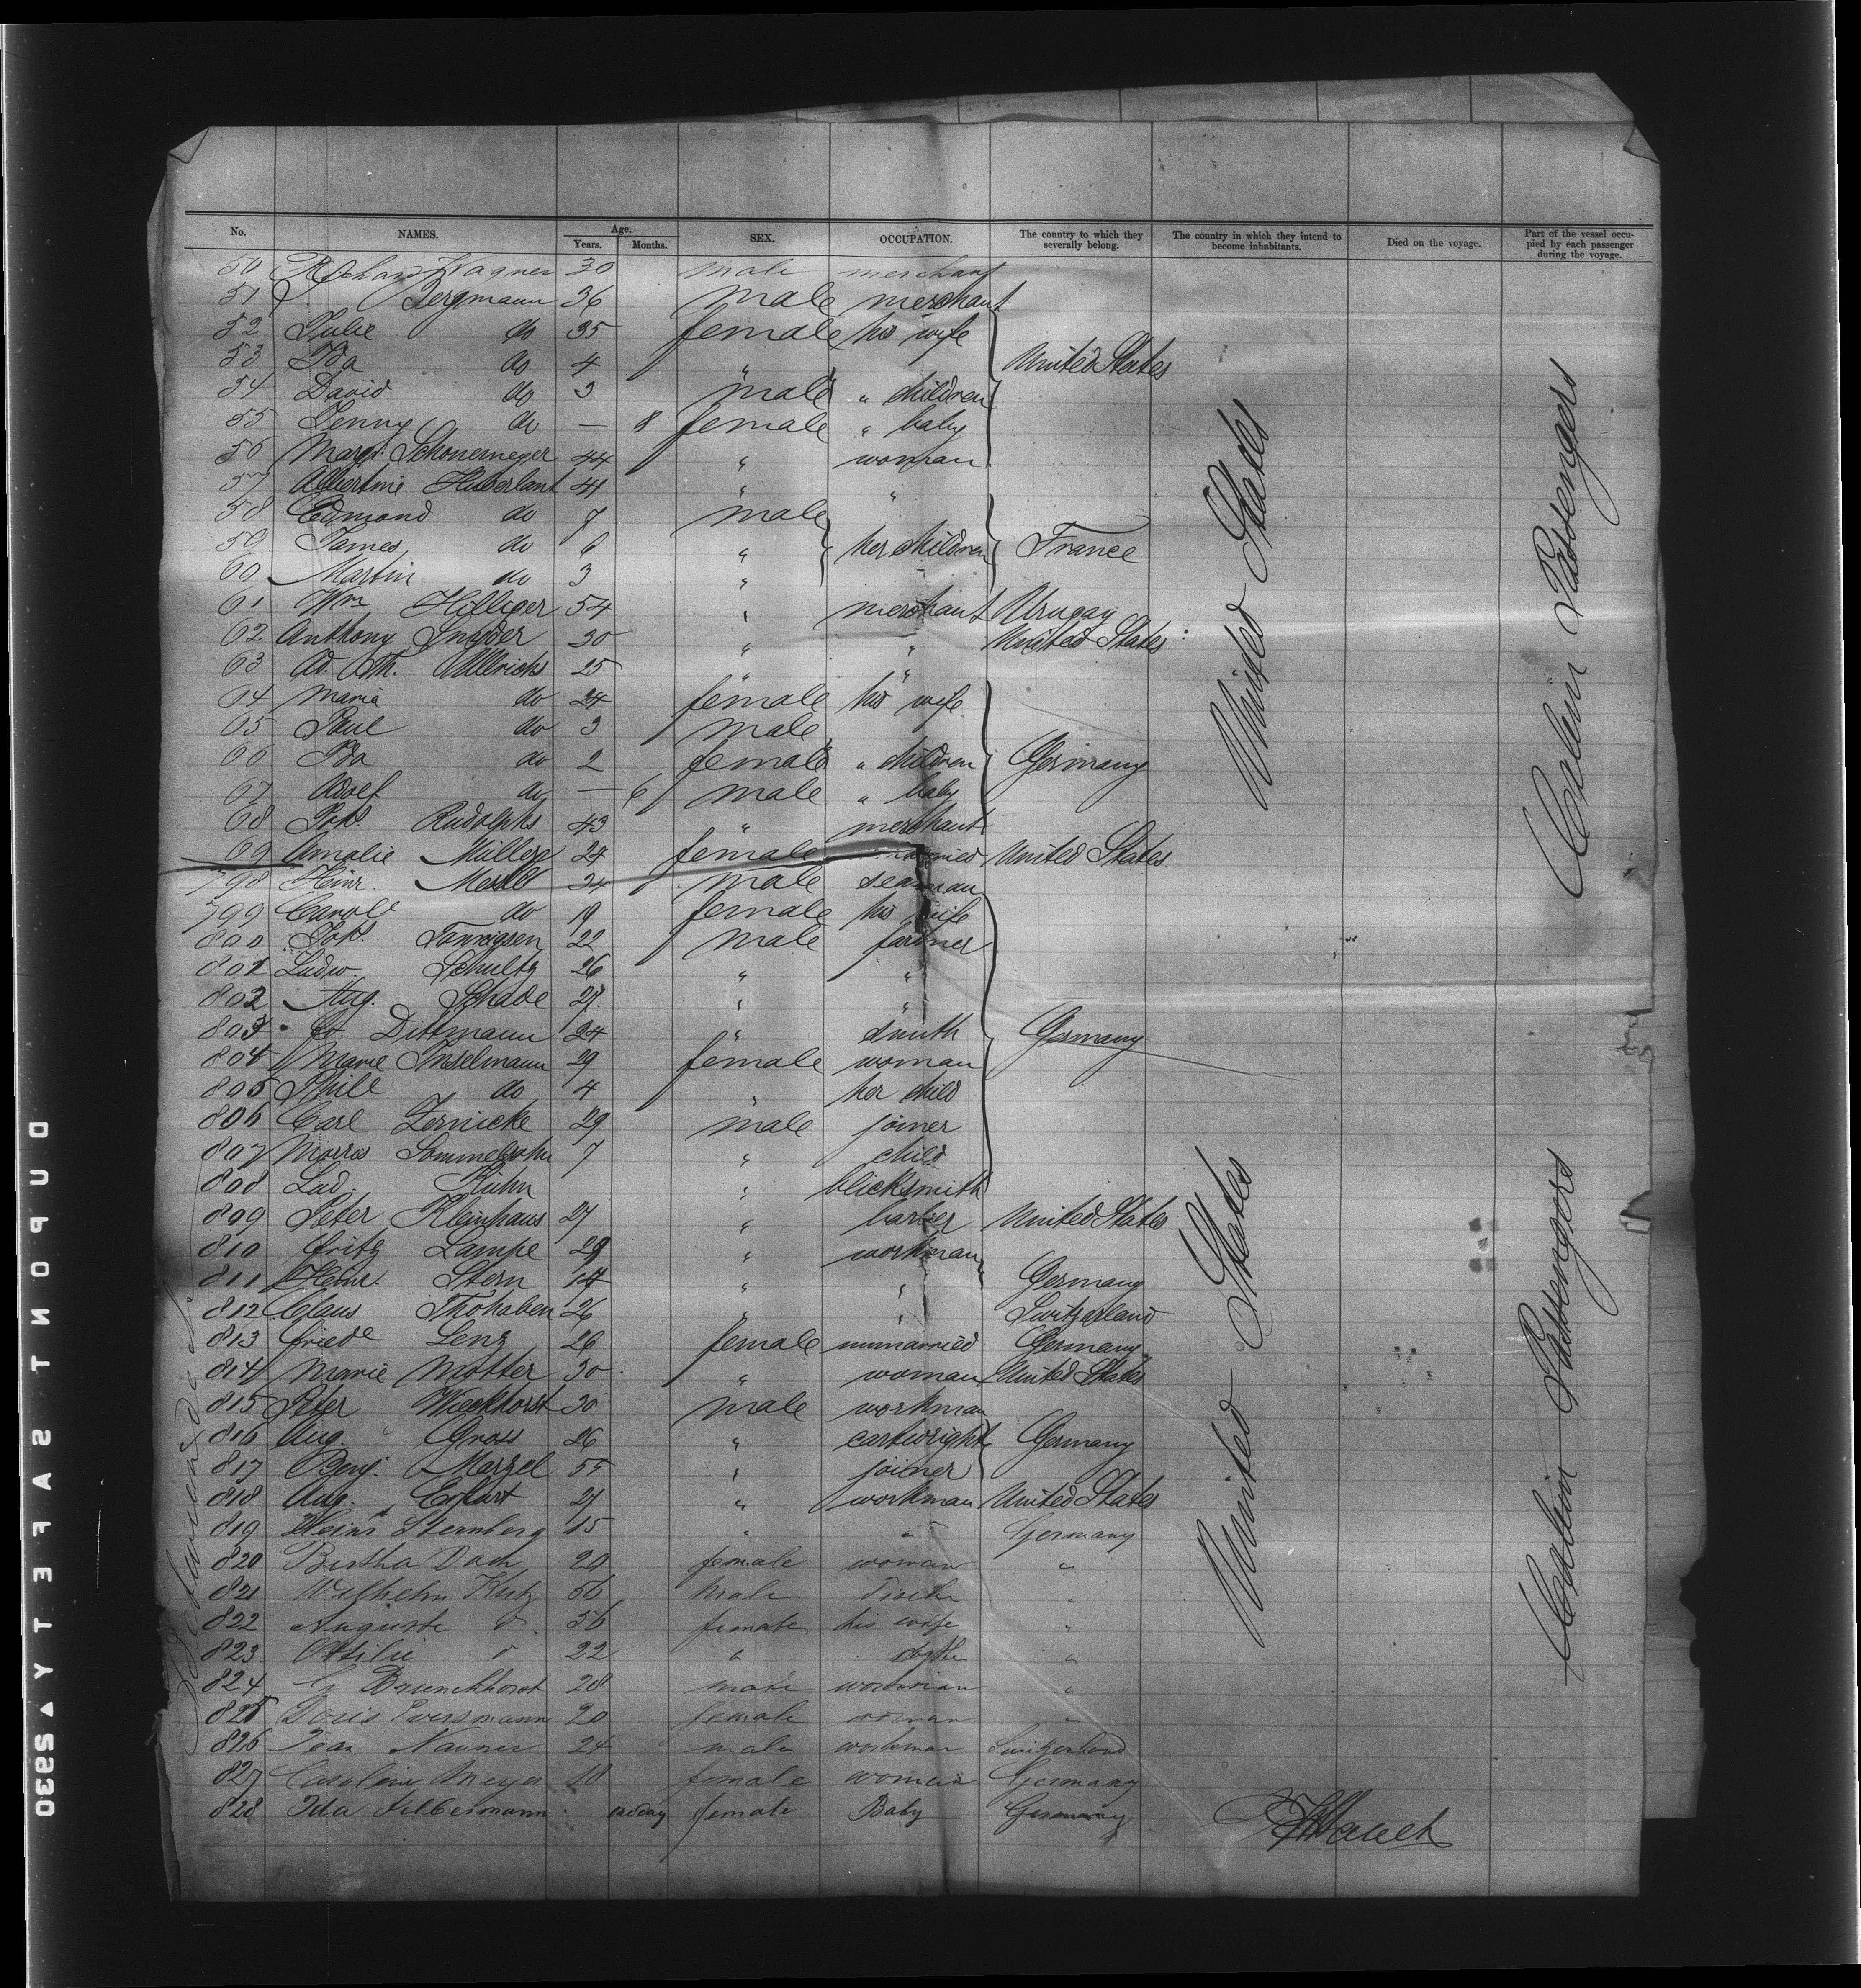 No. NAMES. Age. Years. Months. SEX. OCCUPATION. The country to which they severally belong. The country in which they intend to become inhabitants. Died on the voyage. Part of the vessel occupied by each passenger during the voyage.
50 Richard Wagner 30 male merchant
51 J. Bergmann 36 male merchant
52 Julie do 35 female his wife
53 Ida do 4 " United States
54 David do 3 male " children
55 Jenny do — 8 female " baby
56 Marg. Schonemeyer 44 " woman
57 Albertine Huberlant 41 " "
58 Edmond do 7 male
59 James do 6 " her children France
60 Martin do 3 "
61 Wm Hilliger 54 " merchant Urugay
62 Anthony Snyder 30 " " United States
63 Ad. Th. Ullrichs 25 " "
64 Maria do 24 female his wife
65 Paul do 3 male
66 Ida do 2 female " children Germany
67 Adolf do — 6 male " baby
68 Joh. Rudolphs 43 " merchant
69 Amalie Müller 24 female married United States
798 Heinr. 34 male seaman
799 Carol. do 19 female his wife
800 Joh. Tonnigsen 22 male farmer
801 Ludw. Schultz 26 " "
802 Aug. Schade 27 " "
803 Dittmann 24 " smith Germany
804 Marie Inselmann 29 female woman
805 do 4 " her child
806 Carl Zernicke 29 male joiner
807 Morris Sommelsohn 7 " child
808 Lud. Kuhn " blicksmith
809 Peter Kleinhaus 27 " barber United States
810 Fritz Lampe 28 " workman
811 Heinr. Stern 14 " " Germany
812 Claus Thohaben 26 " " Switzerland
813 Fried. Lenz 26 female unmarried Germany
814 Marie Motter 30 " woman United States
815 Peter Wieckhorst 30 male workman
816 Aug. Gross 26 " cartwright Germany
817 Benj. Marzel 55 " joiner
818 Aug. Erfurt 27 " workman United States
819 Heinr. Sternberg 15 " " Germany
820 Bertha Dach 20 female woman "
821 Wilhelm Kutz 56 male "
822 Auguste d. 56 female his wife "
823 Ottilie d 22 " dgthr "
824 Brunckhorst 28 male workman "
825 Doris Eversmann 20 female woman "
826 Jean Nauner 24 male workman Switzerland
827 Caroline Meyer 18 female woman Germany
828 Ida Silbermann female Baby Germany
United States
Cabin Passengers
United States
Cabin Passengers
DUPONT SAFETY ▲ S930